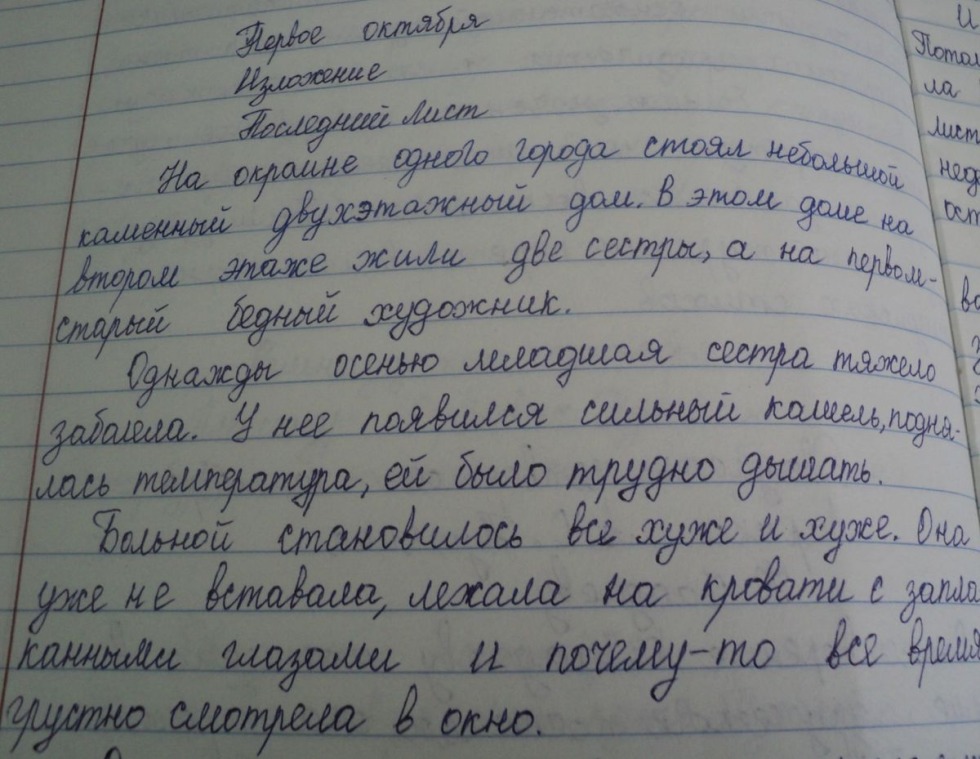 Первое октября
Изложение
Последний лист
На окраине одного города стоял небольшой
каменный двухэтажный дом. В этом доме на
втором этаже жили две сестры, а на первом-
старый бедный художник.
Однажды осенью младшая сестра тяжело
забалела. У нее появился сильный кашель, подня-
лась температура, ей было трудно дышать.
Больной становилось все хуже и хуже. Она
уже не вставала, лежала на кровати с запла
канными глазами и почему-то все время
грустно смотрела в окно.
И
Потом
ла
лист